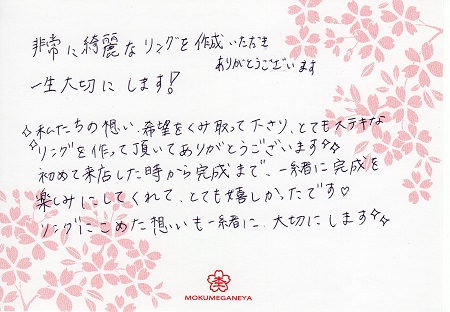 非常に綺麗なリングを作成いただき
ありがとうございます
一生大切にします!
☆私たちの想い、希望をくみ取って下さり、とてもステキな
リングを作って頂いてありがとうございます☆☆
初めて来店した時から完成まで、一緒に完成を
楽しみにしてくれて、とても嬉しかったです♡
リングにこめた想いも一緒に、大切にします☆☆
MOKUMEGANEYA